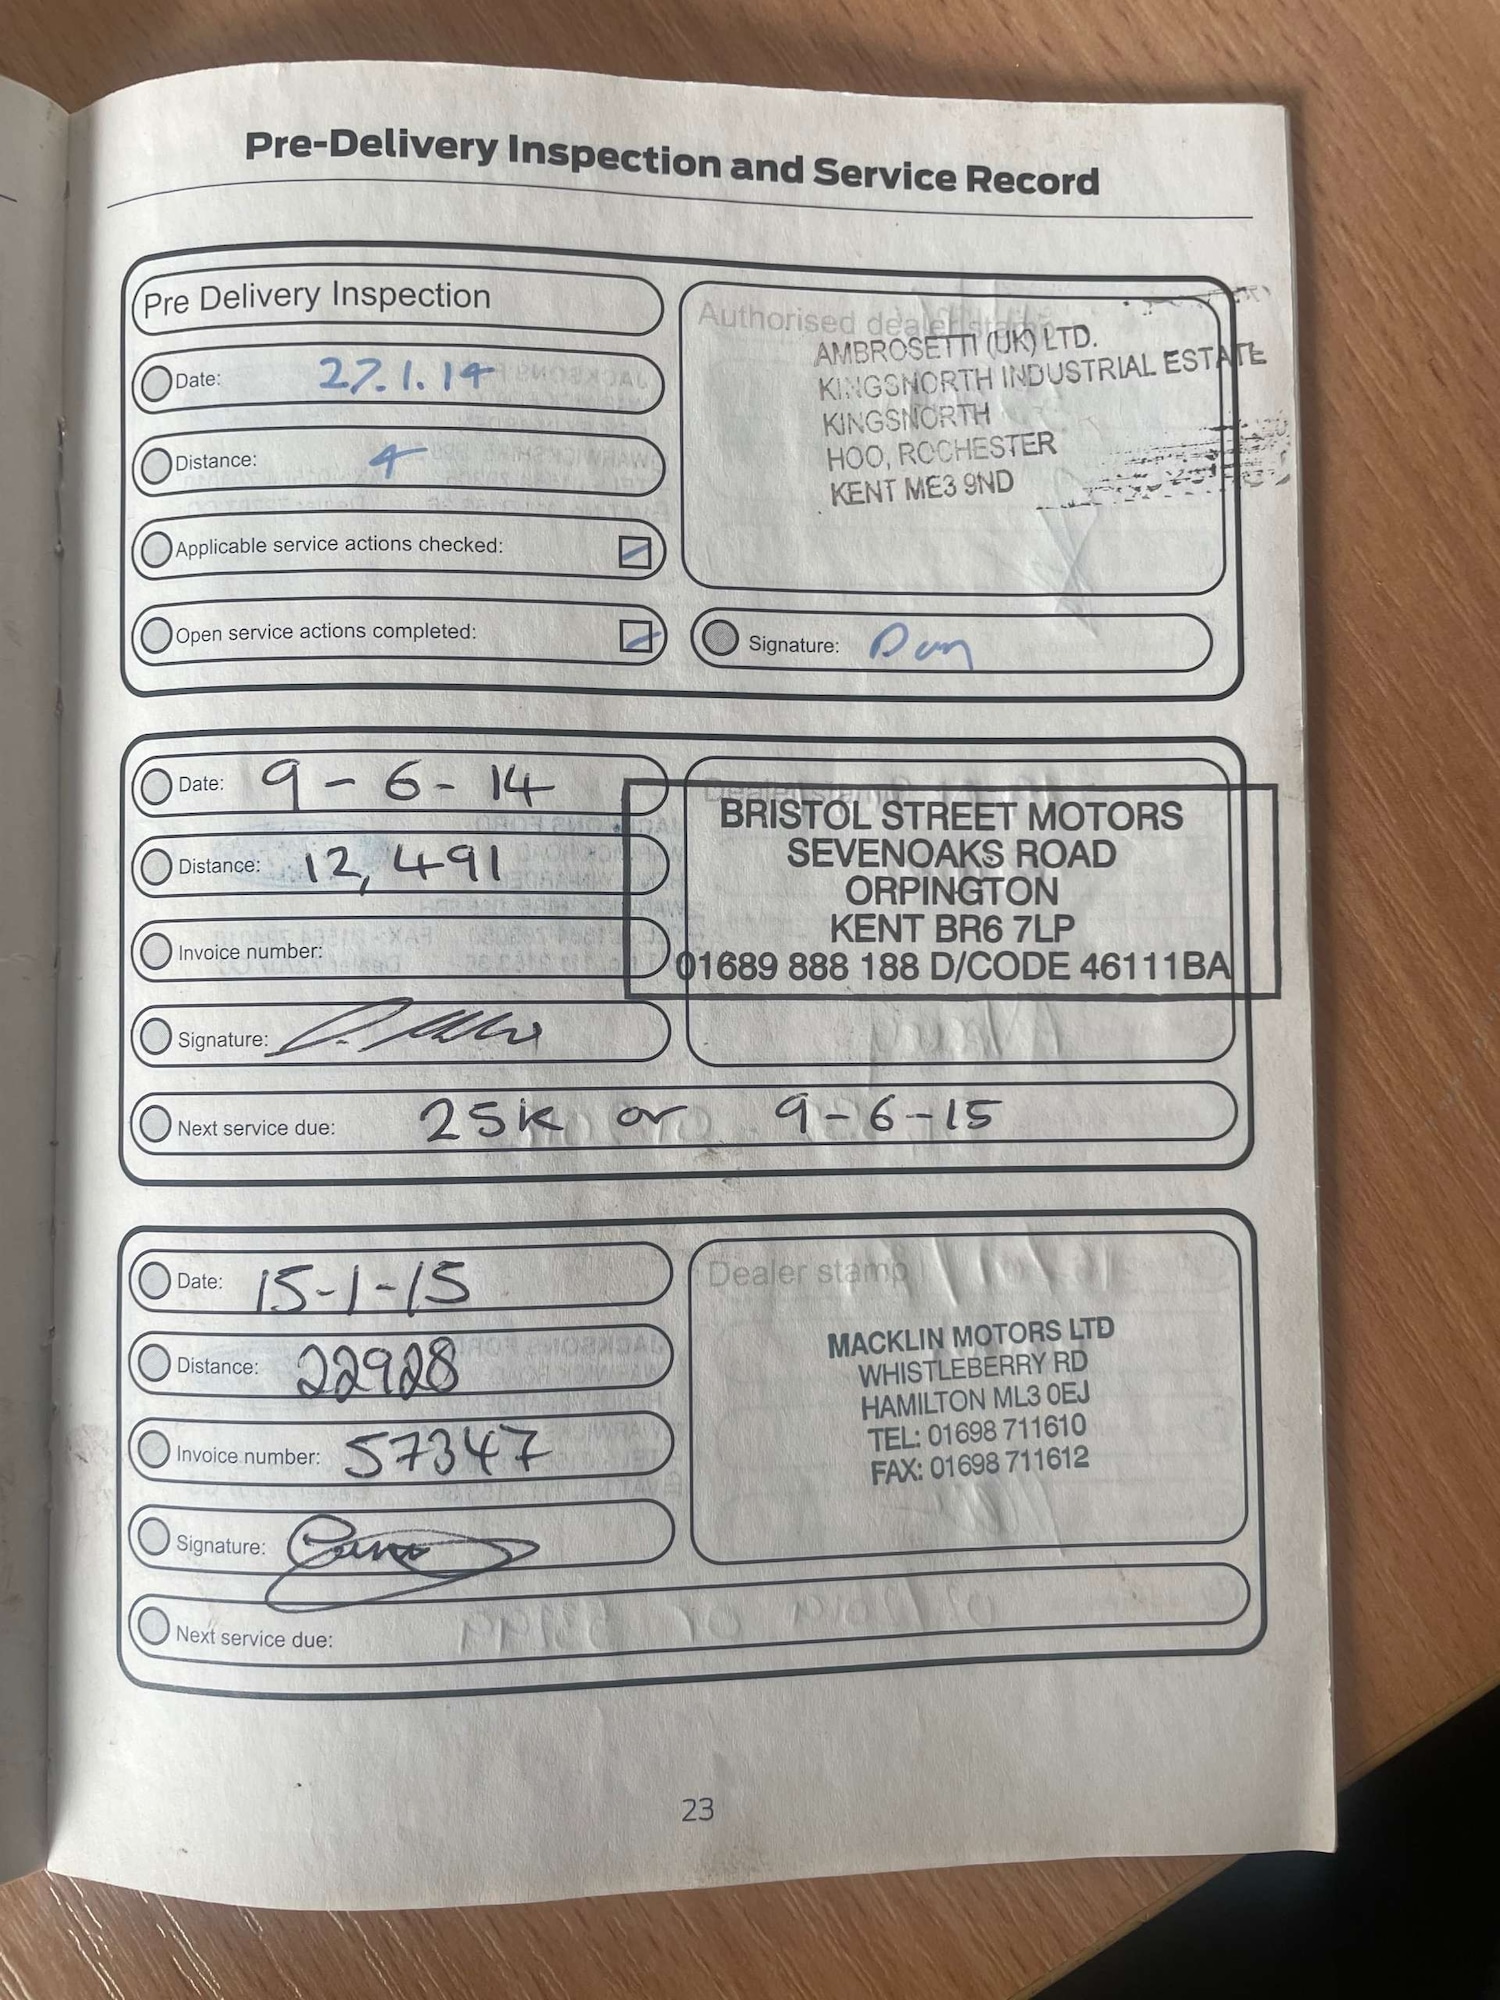 Pre-Delivery Inspection and Service Record
Pre Delivery Inspection
Date: 27.1.14
Distance: 4
Applicable service actions checked:
Open service actions completed:
Authorised dealer stamp
AMBROSETTI (UK) LTD.
KINGSNORTH INDUSTRIAL ESTATE
KINGSNORTH
HOO, ROCHESTER
KENT ME3 9ND
Signature: Dan
Date: 9-6-14
Distance: 12,491
Invoice number:
Signature:
Dealer stamp
BRISTOL STREET MOTORS
SEVENOAKS ROAD
ORPINGTON
KENT BR6 7LP
01689 888 188 D/CODE 46111BA
Next service due: 25K or 9-6-15
Date: 15-1-15
Distance: 22928
Invoice number: 57347
Signature:
Dealer stamp
MACKLIN MOTORS LTD
WHISTLEBERRY RD
HAMILTON ML3 0EJ
TEL: 01698 711610
FAX: 01698 711612
Next service due:
23